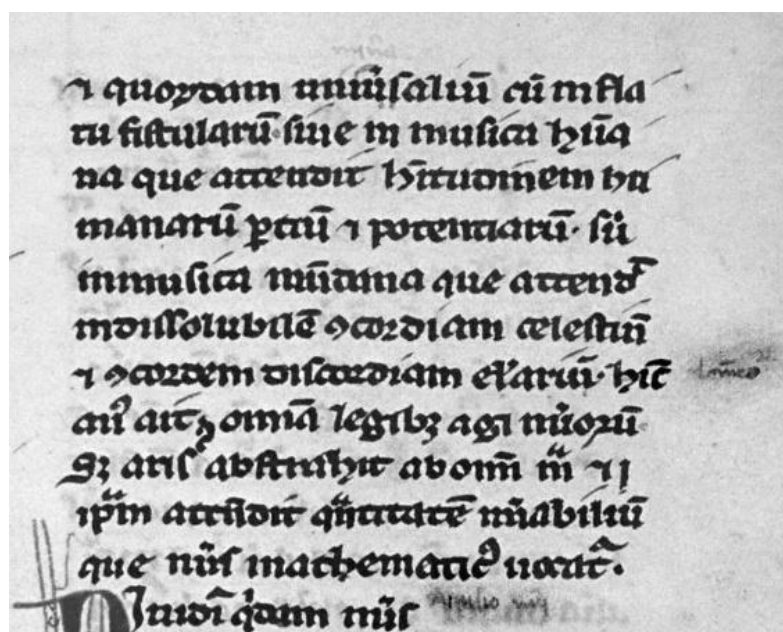 ⁊ quorꝺam uniu͛saliū cū in fla
tu fistularū· siue in musica hūa
na que attendit hītudinem hu
manarū ꝑtiū ⁊ potentiarū· siū
in musica mūdana que attend͛
indissolubilē ꝯcordiam celestiū
⁊ ꝯcordem discordiam hic̄
ait omnia legibꝫ agi nūorū
Sꝫ aris̄ abstrahit ab omī mͣ ⁊
ip̄m attēdit qͣntitatē nūabiliū
que nūs mathematicꝰ uocat͛·
qͥdam nūs